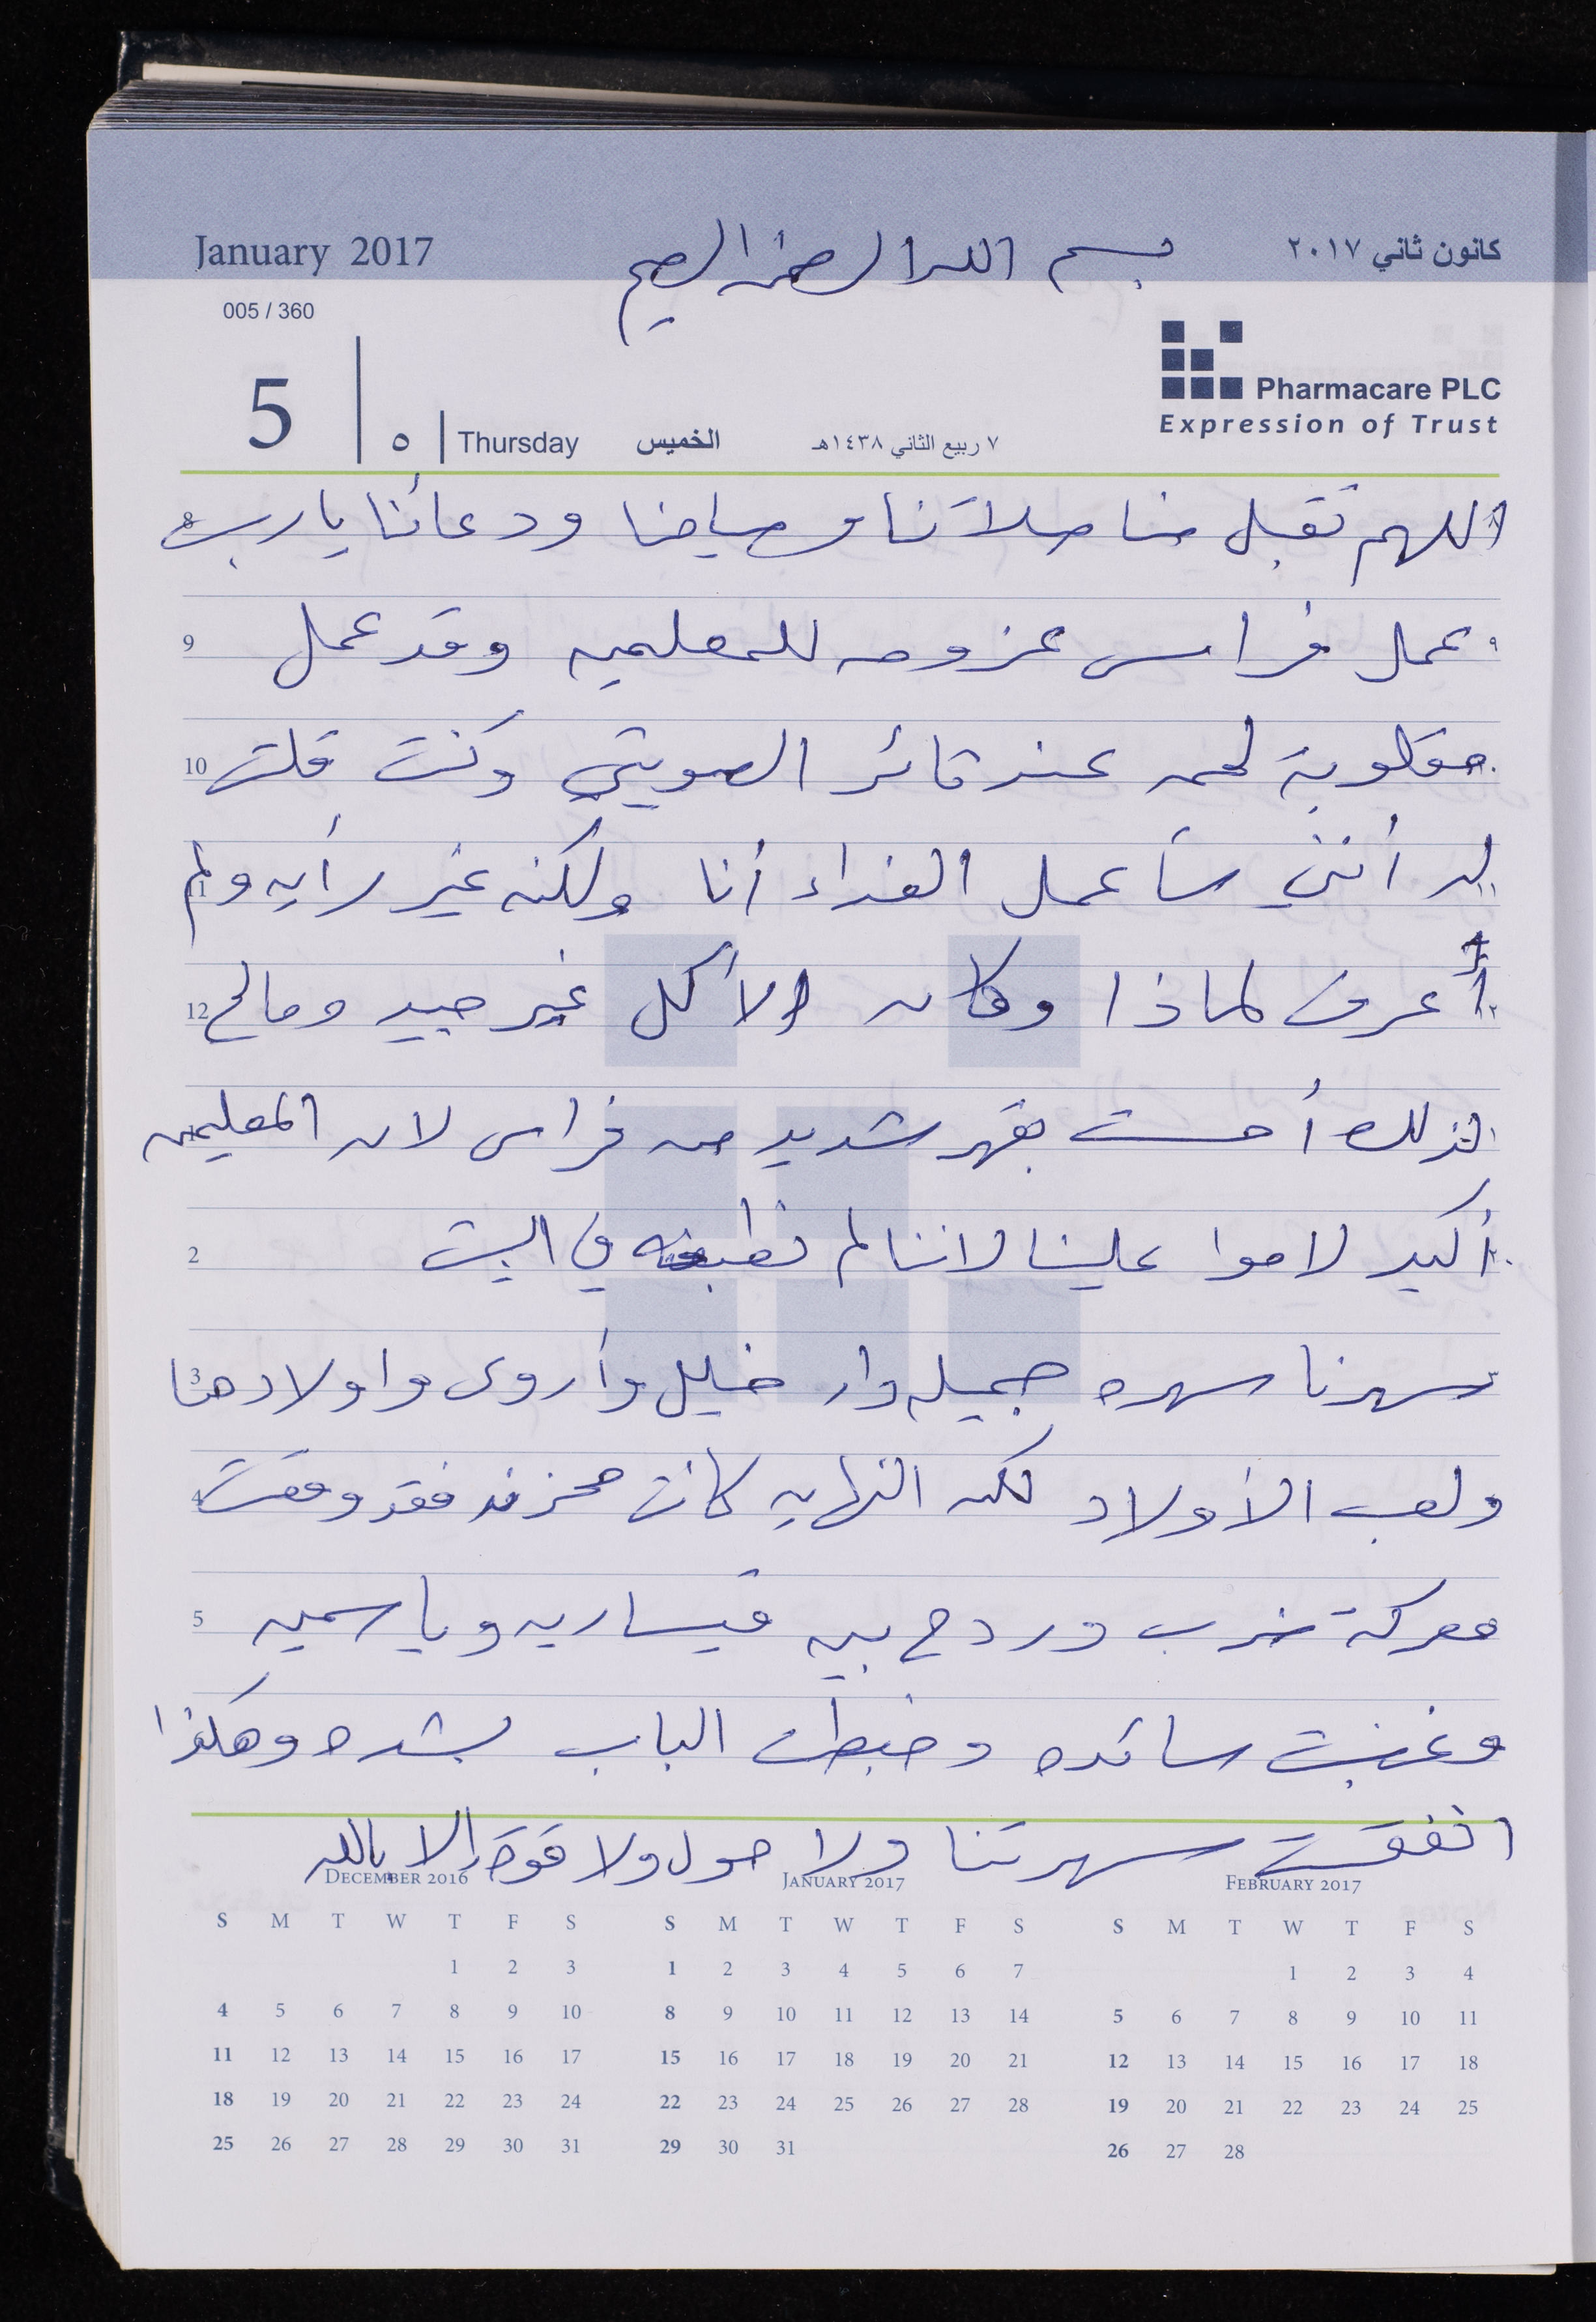 January 2017
بسم الله الرحمن الرحيم
كانون ثاني ٢٠١٧
005 / 360
Pharmacare PLC
Expression of Trust
5 ٥ Thursday الخميس ٧ ربيع الثاني ١٤٣٨هـ
اللهم تقبل منا صلاتنا وصيامنا ودعائنا يا رب
عمل فراس عزومه للمعلمين وقد عمل
مقلوبة لحمه عند قائد الصويتي وكنت قلت
له أنني سأعمل الغداء أنا ولكنه غير رأيه ولم
أعرف لماذا وكان الأكل غير جيد ومالح
لذلك أحست بقهر شديد من فراس لان المعلمين
أكيد لاموا علينا لاننا لم نطبخه في البيت
سهرنا سهره جميله دار خليل وأروى واولادهنا
ولعب الأولاد لكن النهايه كانت محزنه فقد وقعت
معركة ضرب وردح بين قيساريه وياسمين
وغضبت سائده وخبطت الباب بشده وهكذا
انفقست سهرتنا ولا حول ولا قوة إلا بالله
8
9 ٩
10
11
12
2
3
4
5
DECEMBER 2016
S M T W T F S
1 2 3
4 5 6 7 8 9 10
11 12 13 14 15 16 17
18 19 20 21 22 23 24
25 26 27 28 29 30 31
JANUARY 2017
S M T W T F S
1 2 3 4 5 6 7
8 9 10 11 12 13 14
15 16 17 18 19 20 21
22 23 24 25 26 27 28
29 30 31
FEBRUARY 2017
S M T W T F S
1 2 3 4
5 6 7 8 9 10 11
12 13 14 15 16 17 18
19 20 21 22 23 24 25
26 27 28